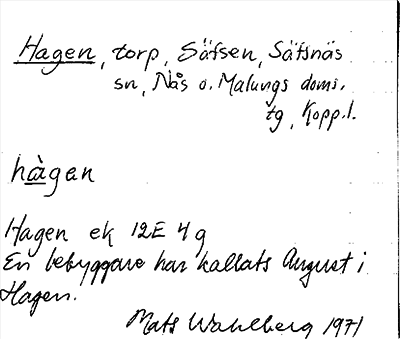 Hagen, torp, Säfsen, Säfsnäs
sn, Nås o. Malungs doms.
tg, Kopp.l.
hàgen
Hagen ek 12E 4g
En bebyggare har kallats August i
Hagen.
Mats Wahlberg 1971